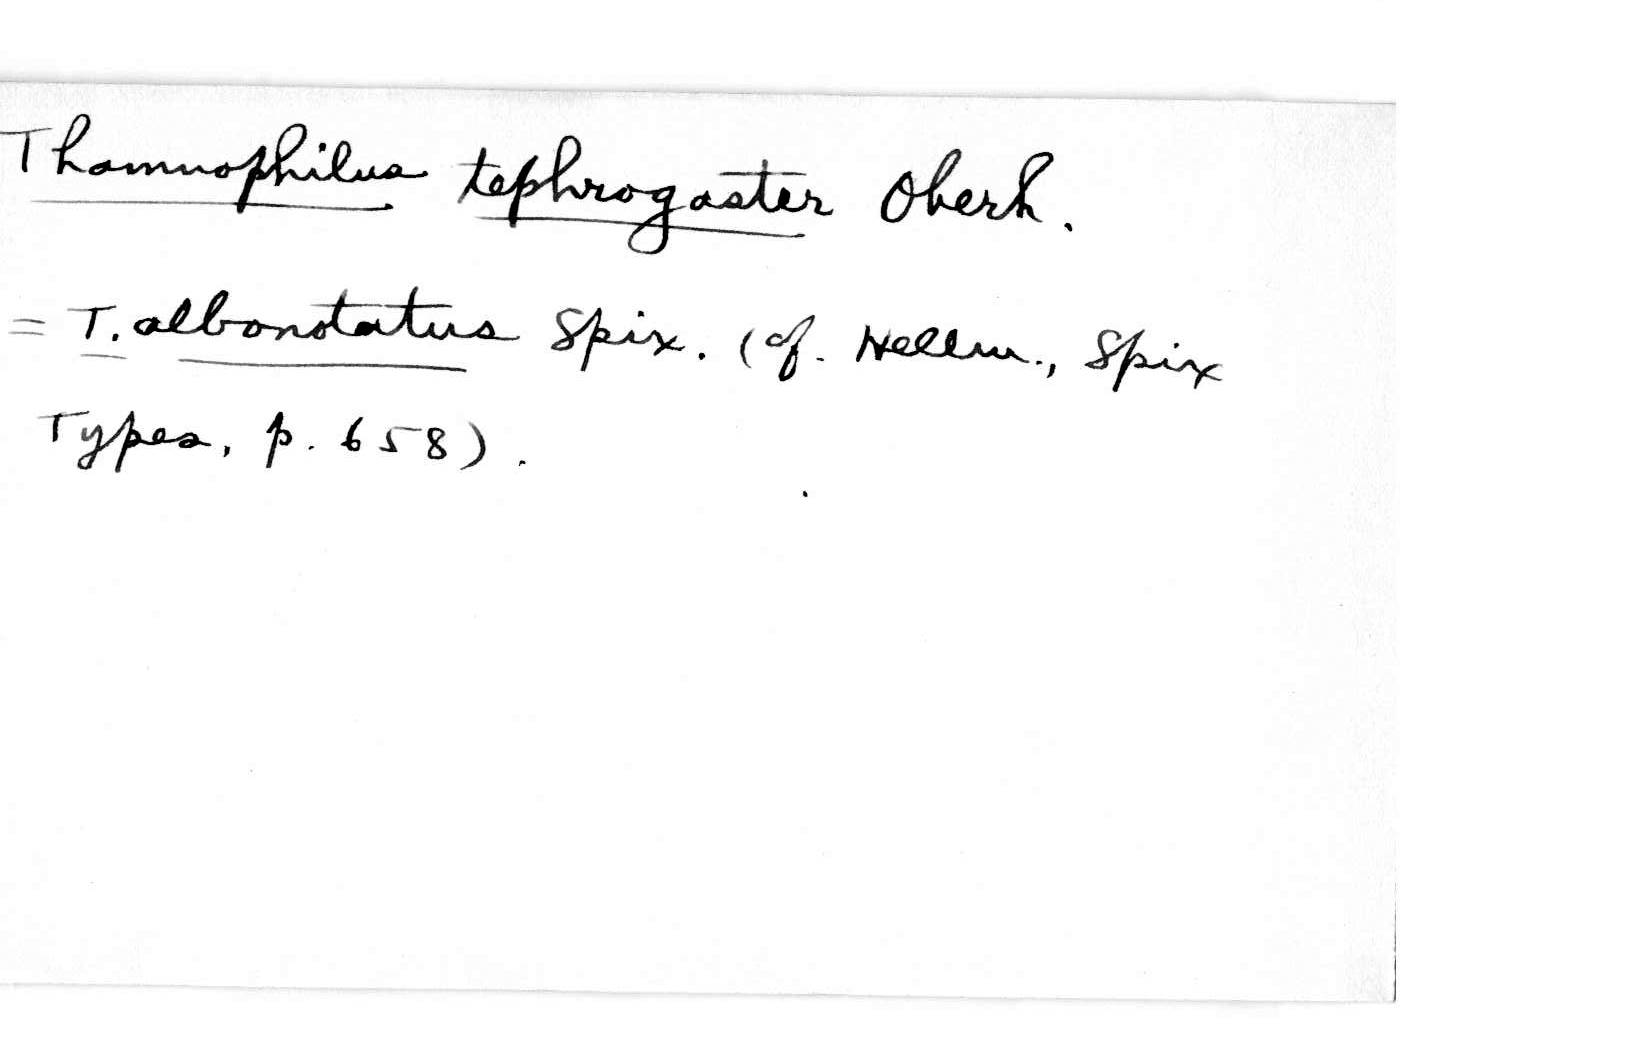 Thamnophilus tephrogaster Oberh.
= T. albonotatus Spix. (cf. Hellm., Spix
Types, p. 658).